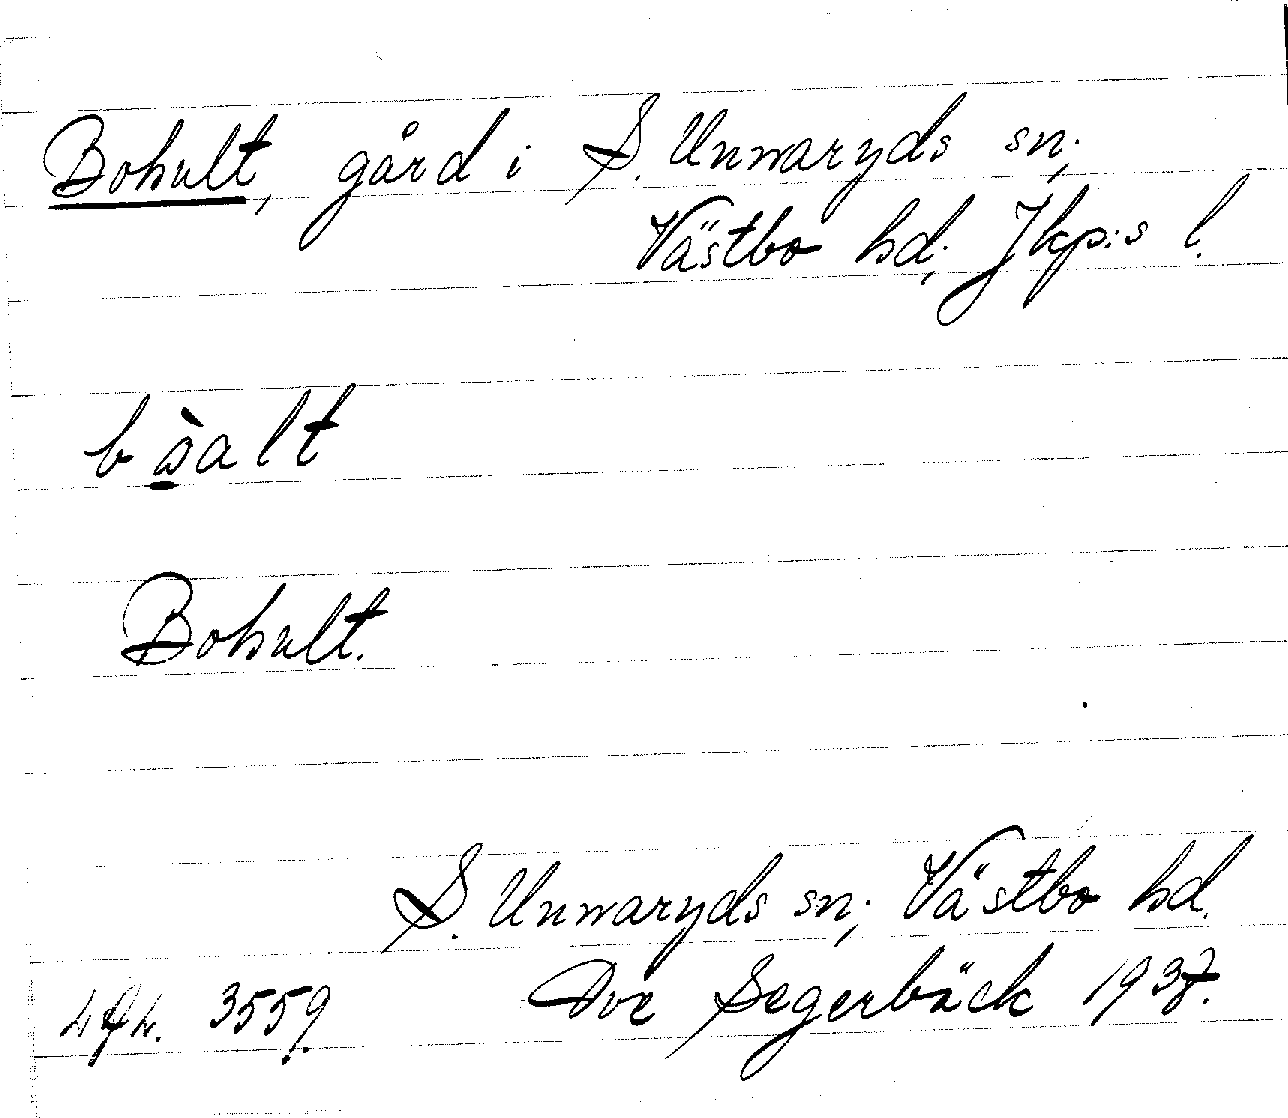 Bohult, gård i S. Unnaryds sn;
Västbo hd; Jkp:s l.
bὼalt
Bohult.
S. Unnaryds sn; Västbo hd.
3559. Ove Segerbäck 1937.